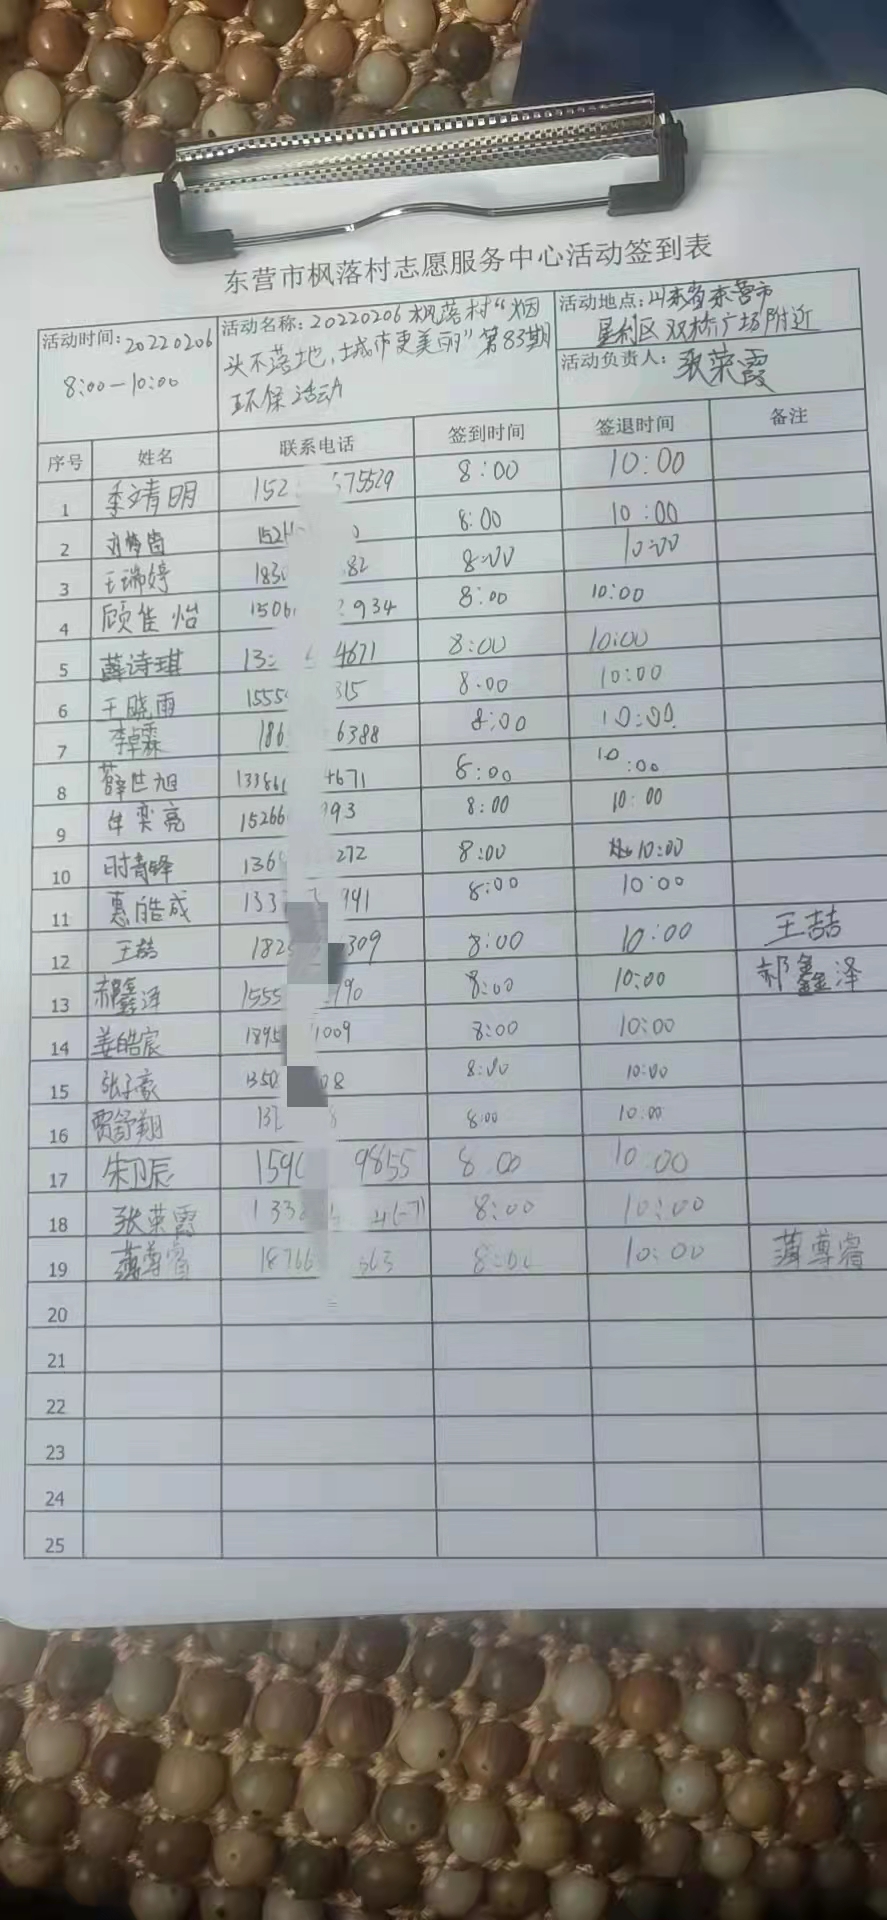 东营市枫落村志愿服务中心活动签到表
活动时间: 20220206
8:00—10:00
活动名称: 20220206枫落村“烟
头不落地,城市更美丽”第83期
环保活动
活动地点: 山东省东营市
垦利区双桥广场附近
活动负责人: 张荣霞
序号 姓名 联系电话 签到时间 签退时间 备注
1 季靖明 152 75529 8:00 10:00
2 1526 0 8:00 10:00
3 王瑞婷 183 82 8:00 10:00
4 顾佳怡 1506 2934 8:00 10:00
5 薛诗琪 13 4671 8:00 10:00
6 王晓雨 1555 315 8:00 10:00
7 李卓霖 186 6388 8:00 10:00
8 薛世旭 13386 4671 8:00 10:00
9 牟奕亮 15266 993 8:00 10:00
10 时青锋 136 272 8:00 10:00
11 惠皓成 133 941 8:00 10:00
12 王喆 182 309 8:00 10:00 王喆
13 郝鑫泽 1555 790 8:00 10:00 郝鑫泽
14 姜皓宸 1895 1009 8:00 10:00
15 张子豪 1350 08 8:00 10:00
16 贾舒翔 13 8 8:00 10:00
17 朱卫辰 159 9855 8:00 10:00
18 张荣霞 133 8:00 10:00
19 薄尊睿 18766 563 8:00 10:00 薄尊睿
20
21
22
23
24
25